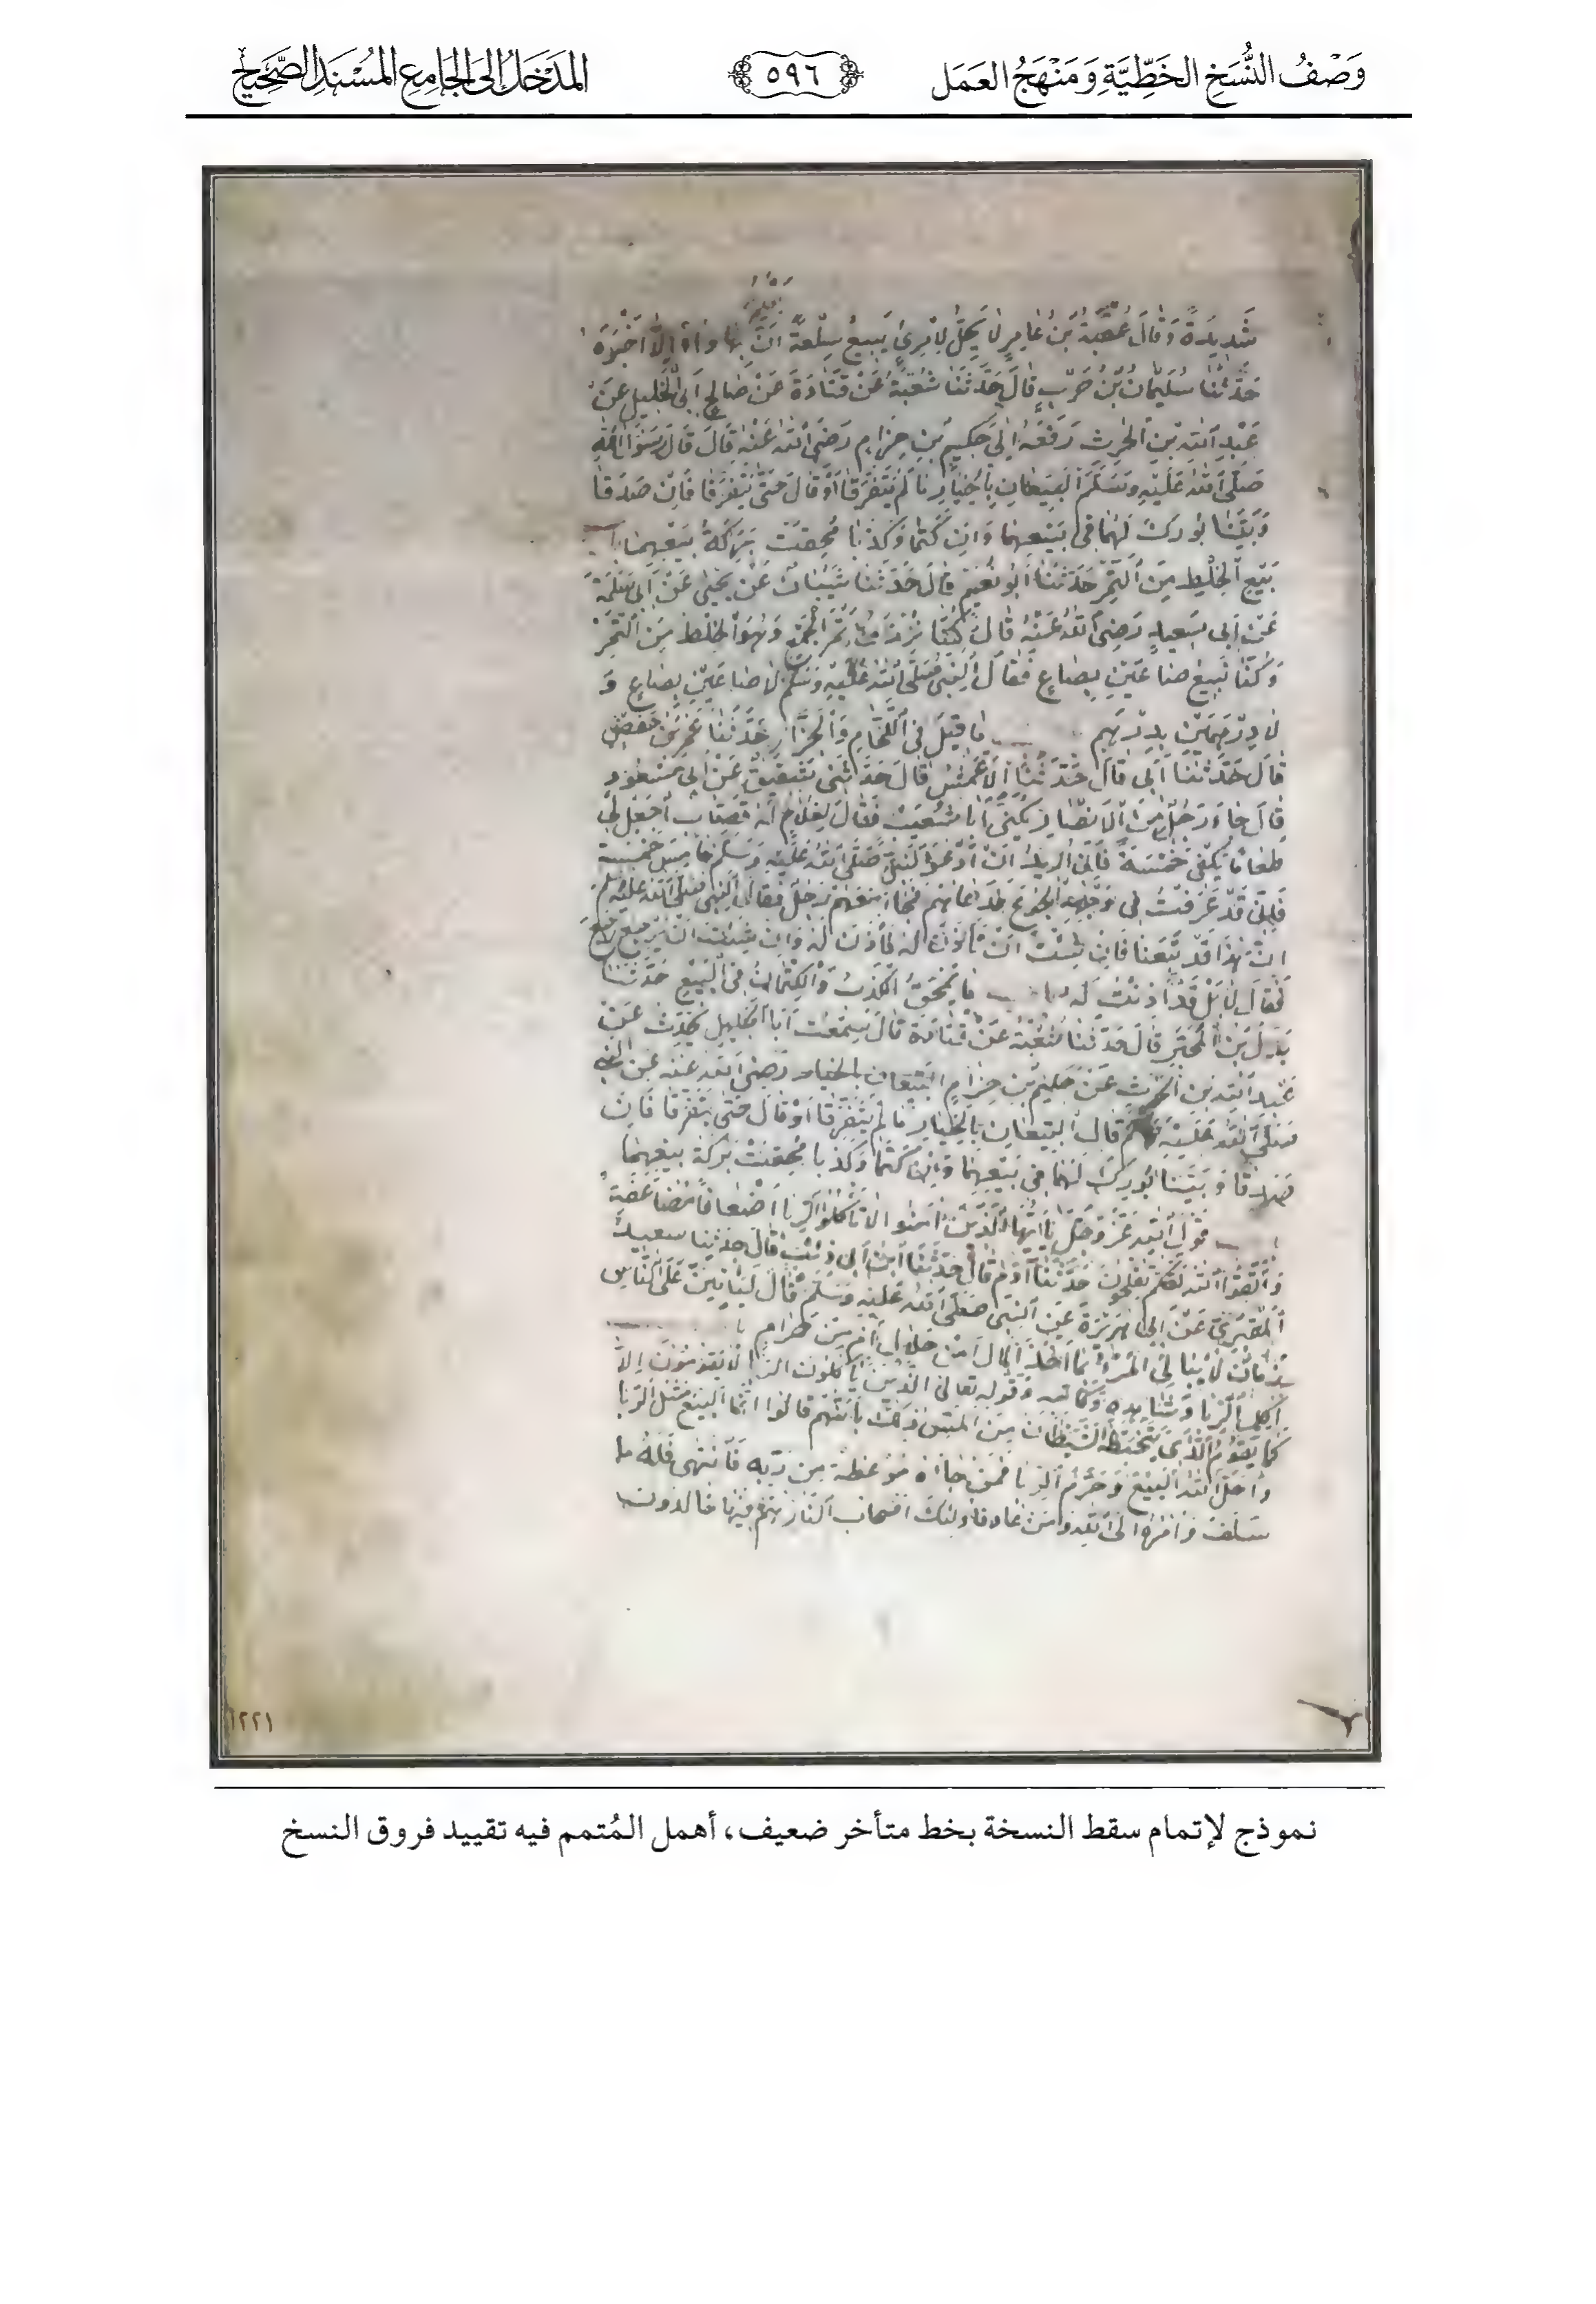 وَصْفُ النُّسَخِ الخَطِّيَّةِ وَمَنْهَجُ العَمَل
٥٩٦
المَدْخَلُ إلى الجَامِعِ المُسْنَدِ الصَّحِيحِ
شَدِيدَةً وَقَالَ عُقْبَةُ بْنُ عَامِرٍ لَا يَحِلُّ لِامْرِئٍ يَبِيعُ سِلْعَةً أَنَّ بِهَا دَاءً إِلَّا أَخْبَرَهُ
حَدَّثَنَا سُلَيْمَانُ بْنُ حَرْبٍ قَالَ حَدَّثَنَا شُعْبَةُ عَنْ قَتَادَةَ عَنْ صَالِحٍ أَبِي الْخَلِيلِ عَنْ
عَبْدِ اللهِ بْنِ الْحَرِثِ رَفَعَهُ إِلَى حَكِيمِ بْنِ حِزَامٍ رَضِيَ اللهُ عَنْهُ قَالَ قَالَ رَسُولُ اللهِ
صَلَّى اللهُ عَلَيْهِ وَسَلَّمَ الْبَيِّعَانِ بِالْخِيَارِ مَا لَمْ يَتَفَرَّقَا أَوْ قَالَ حَتَّى يَتَفَرَّقَا فَإِنْ صَدَقَا
وَبَيَّنَا بُورِكَ لَهُمَا فِي بَيْعِهِمَا وَإِنْ كَتَمَا وَكَذَبَا مُحِقَتْ بَرَكَةُ بَيْعِهِمَا
بَيْعِ الْخِلْطِ مِنَ التَّمْرِ حَدَّثَنَا أَبُو نُعَيْمٍ قَالَ حَدَّثَنَا شَيْبَانُ عَنْ يَحْيَى عَنْ أَبِي سَلَمَةَ
عَنْ أَبِي سَعِيدٍ رَضِيَ اللهُ عَنْهُ قَالَ كُنَّا نُرْزَقُ تَمْرَ الْجَمْعِ وَهُوَ الْخِلْطُ مِنَ التَّمْرِ
وَكُنَّا نَبِيعُ صَاعَيْنِ بِصَاعٍ فَقَالَ النَّبِيُّ صَلَّى اللهُ عَلَيْهِ وَسَلَّمَ لَا صَاعَيْنِ بِصَاعٍ وَ
لَا دِرْهَمَيْنِ بِدِرْهَمٍ مَا قِيلَ فِي اللَّحَّامِ وَالْجَزَّارِ حَدَّثَنَا عُمَرُ بْنُ حَفْصٍ
قَالَ حَدَّثَنَا أَبِي قَالَ حَدَّثَنَا الْأَعْمَشُ قَالَ حَدَّثَنِي شَقِيقٌ عَنْ أَبِي مَسْعُودٍ
قَالَ جَاءَ رَجُلٌ مِنَ الْأَنْصَارِ يُكْنَى أَبَا شُعَيْبٍ فَقَالَ لِغُلَامٍ لَهُ قَصَّابٍ اجْعَلْ لِي
طَعَامًا يَكْفِي خَمْسَةً فَإِنِّي أُرِيدُ أَنْ أَدْعُوَ النَّبِيَّ صَلَّى اللهُ عَلَيْهِ وَسَلَّمَ خَامِسَ خَمْسَةٍ
فَإِنِّي قَدْ عَرَفْتُ فِي وَجْهِهِ الْجُوعَ فَدَعَاهُمْ فَجَاءَ مَعَهُمْ رَجُلٌ فَقَالَ النَّبِيُّ صَلَّى اللهُ عَلَيْهِ وَسَلَّمَ
إِنَّ هَذَا قَدْ تَبِعَنَا فَإِنْ شِئْتَ أَنْ تَأْذَنَ لَهُ فَأْذَنْ لَهُ وَإِنْ شِئْتَ أَنْ يَرْجِعَ رَجَعَ
فَقَالَ لَا بَلْ قَدْ أَذِنْتُ لَهُ مَا يَمْحَقُ الْكَذِبُ وَالْكِتْمَانُ فِي الْبَيْعِ حَدَّثَنَا
بَدَلُ بْنُ الْمُحَبَّرِ قَالَ حَدَّثَنَا شُعْبَةُ عَنْ قَتَادَةَ قَالَ سَمِعْتُ أَبَا الْخَلِيلِ يُحَدِّثُ عَنْ
عَبْدِ اللهِ بْنِ الْحَرِثِ عَنْ حَكِيمِ بْنِ حِزَامٍ الْبَيِّعَانِ بِالْخِيَارِ رَضِيَ اللهُ عَنْهُ عَنِ النَّبِيِّ
صَلَّى اللهُ عَلَيْهِ وَسَلَّمَ قَالَ الْبَيِّعَانِ بِالْخِيَارِ مَا لَمْ يَتَفَرَّقَا أَوْ قَالَ حَتَّى يَتَفَرَّقَا فَإِنْ
صَدَقَا وَبَيَّنَا بُورِكَ لَهُمَا فِي بَيْعِهِمَا وَإِنْ كَتَمَا وَكَذَبَا مُحِقَتْ بَرَكَةُ بَيْعِهِمَا
قَوْلِ اللهِ عَزَّ وَجَلَّ يَا أَيُّهَا الَّذِينَ آمَنُوا لَا تَأْكُلُوا الرِّبَا أَضْعَافًا مُضَاعَفَةً
وَاتَّقُوا اللهَ لَعَلَّكُمْ تُفْلِحُونَ حَدَّثَنَا آدَمُ قَالَ حَدَّثَنَا ابْنُ أَبِي ذِئْبٍ قَالَ حَدَّثَنَا سَعِيدٌ
الْمَقْبُرِيُّ عَنْ أَبِي هُرَيْرَةَ عَنِ النَّبِيِّ صَلَّى اللهُ عَلَيْهِ وَسَلَّمَ قَالَ لَيَأْتِيَنَّ عَلَى النَّاسِ
زَمَانٌ لَا يُبَالِي الْمَرْءُ بِمَا أَخَذَ الْمَالَ أَمِنْ حَلَالٍ أَمْ مِنْ حَرَامٍ
آكِلِ الرِّبَا وَشَاهِدِهِ وَكَاتِبِهِ وَقَوْلِهِ تَعَالَى الَّذِينَ يَأْكُلُونَ الرِّبَا لَا يَقُومُونَ إِلَّا
كَمَا يَقُومُ الَّذِي يَتَخَبَّطُهُ الشَّيْطَانُ مِنَ الْمَسِّ ذَلِكَ بِأَنَّهُمْ قَالُوا إِنَّمَا الْبَيْعُ مِثْلُ الرِّبَا
وَأَحَلَّ اللهُ الْبَيْعَ وَحَرَّمَ الرِّبَا فَمَنْ جَاءَهُ مَوْعِظَةٌ مِنْ رَبِّهِ فَانْتَهَى فَلَهُ مَا
سَلَفَ وَأَمْرُهُ إِلَى اللهِ وَمَنْ عَادَ فَأُولَئِكَ أَصْحَابُ النَّارِ هُمْ فِيهَا خَالِدُونَ
نموذج لإتمام سقط النسخة بخط متأخر ضعيف، أهمل المُتمم فيه تقييد فروق النسخ